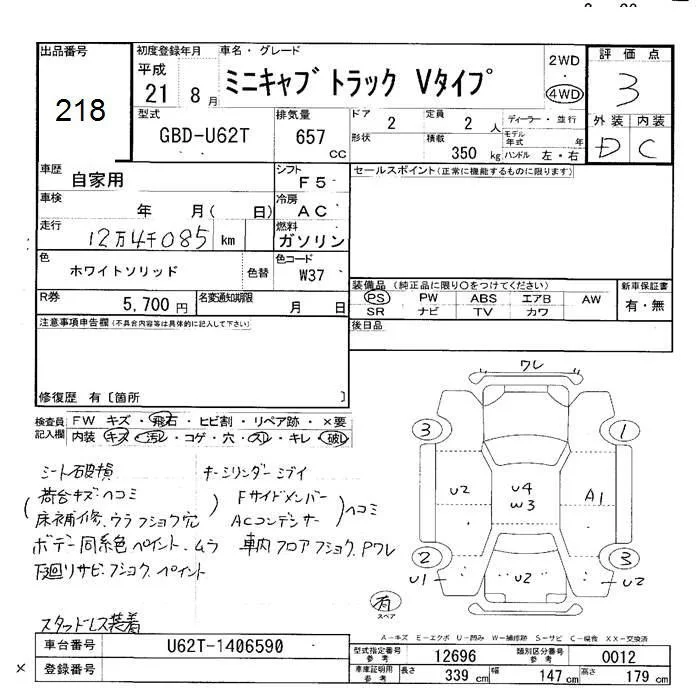 出品番号
218
初度登録年月
平成
21 8月
車名・グレード
ミニキャブ トラック Vタイプ
2WD
・
4WD
評価点
3
外装 内装
D C
型式
GBD-U62T
排気量
657
CC
ドア
2
定員
2 人
ディーラー・並行
形状
積載
350 kg
モデル
年式 年
ハンドル 左・右
車歴
自家用
シフト
F5
車検
年 月( 日)
冷房
AC
走行
12万4千085 km
燃料
ガソリン
色
ホワイトソリッド
色替
色コード
W37
R券
5,700円
名変通知期限
月 日
セールスポイント(正常に機能するものに限ります)
装備品 (純正品に限り○をつけてください)
PS PW ABS エアB AW
SR ナビ TV カワ
新車保証書
有・無
後日品
注意事項申告欄(不具合内容等は具体的に記入して下さい)
修復歴 有〔箇所 〕
検査員記入欄
FW キズ・飛石・ヒビ割・リペア跡・×要
内装 キズ・汚レ・コゲ・穴・スレ・キレ・破レ
シート破損
キーシリンダーシブイ
(荷台キズヘコミ
床補修、ウラフショク穴)
Fサイドメンバー
ACコンデンサー)ヘコミ
ボデー同系色ペイント、ムラ
車内フロアフショク、Pワレ
下廻リサビ、フショク、ペイント
スタッドレス装着
ワレ
3
1
U2
U4
W3
A1
2
3
U1
U2
U2
有
スペア
A−キズ E−エクボ U−凹み W−補修跡 S−サビ C−腐食 XX−交換済
車台番号
U62T-1406590
登録番号
型式指定番号
参考
12696
類別区分番号
参考
0012
車庫証明用
参考
長さ
339 cm
幅
147 cm
高さ
179 cm
×